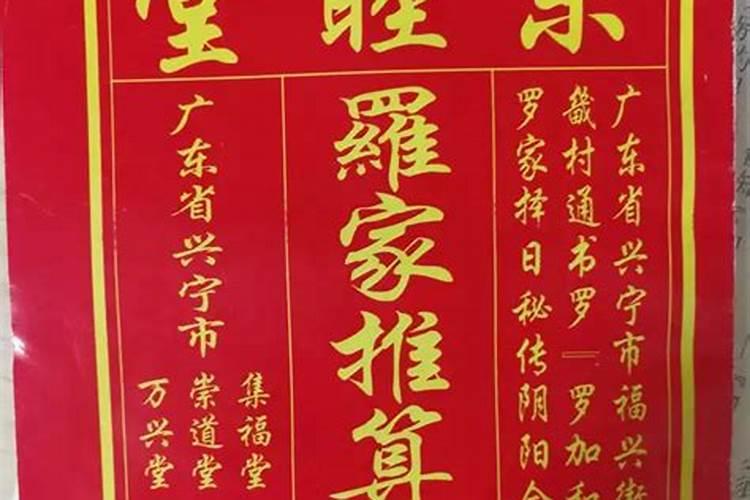 睦堂
广东省兴宁市福兴街
畿村通书罗||罗加和
罗家择日秘传阴阳合
羅家推算
广东省兴宁市
集福堂
崇道堂
万兴堂